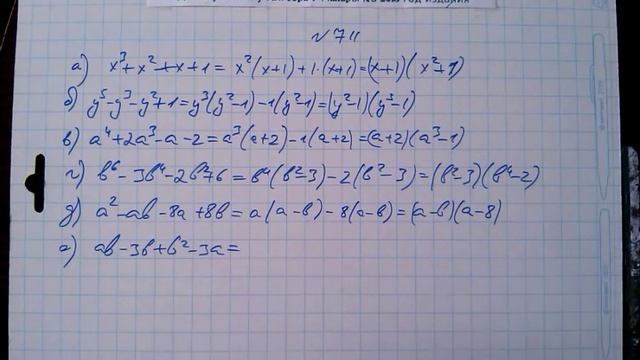 №711
а) x³+x²+x+1 = x²(x+1)+1·(x+1)=(x+1)(x²+1)
б) y⁵-y³-y²+1=y³(y²-1)-1(y²-1)=(y²-1)(y³-1)
в) a⁴+2a³-a-2=a³(a+2)-1(a+2)=(a+2)(a³-1)
г) b⁶-3b⁴-2b²+6=b⁴(b²-3)-2(b²-3)=(b²-3)(b⁴-2)
д) a²-ab-8a+8b=a(a-b)-8(a-b)=(a-b)(a-8)
е) ab-3b+b²-3a=